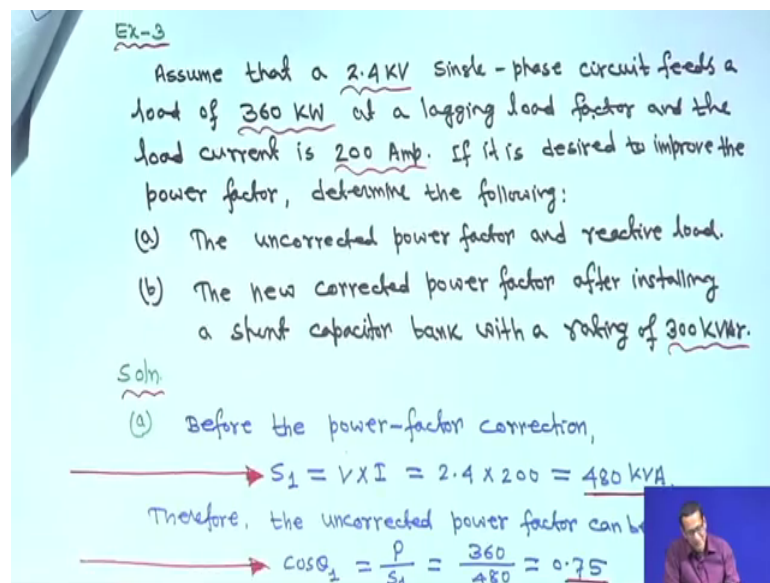 Ex-3
Assume that a 2.4 KV Single-phase circuit feeds a
load of 360 KW at a lagging load factor and the
load current is 200 Amp. If it is desired to improve the
power factor, determine the following:
(a) The uncorrected power factor and reactive load.
(b) The new corrected power factor after installing
a shunt capacitor bank with a rating of 300 KVAr.
Soln.
(a) Before the power-factor correction,
S₁ = V×I = 2.4 × 200 = 480 kVA.
Therefore, the uncorrected power factor can be
cosθ₁ = P/S₁ = 360/480 = 0.75